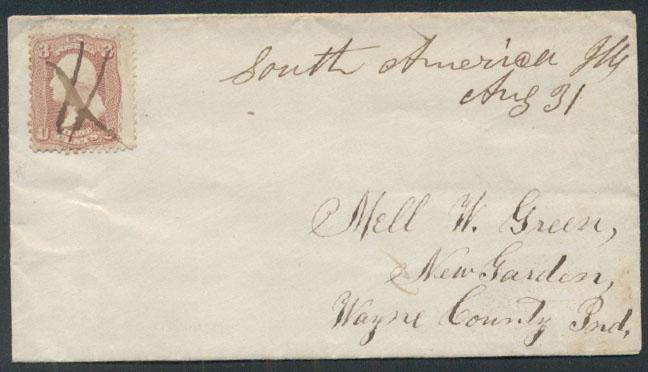 3 3
U S
South America Ills
Aug 31
Mell W. Green,
New Garden,
Wayne County Ind.